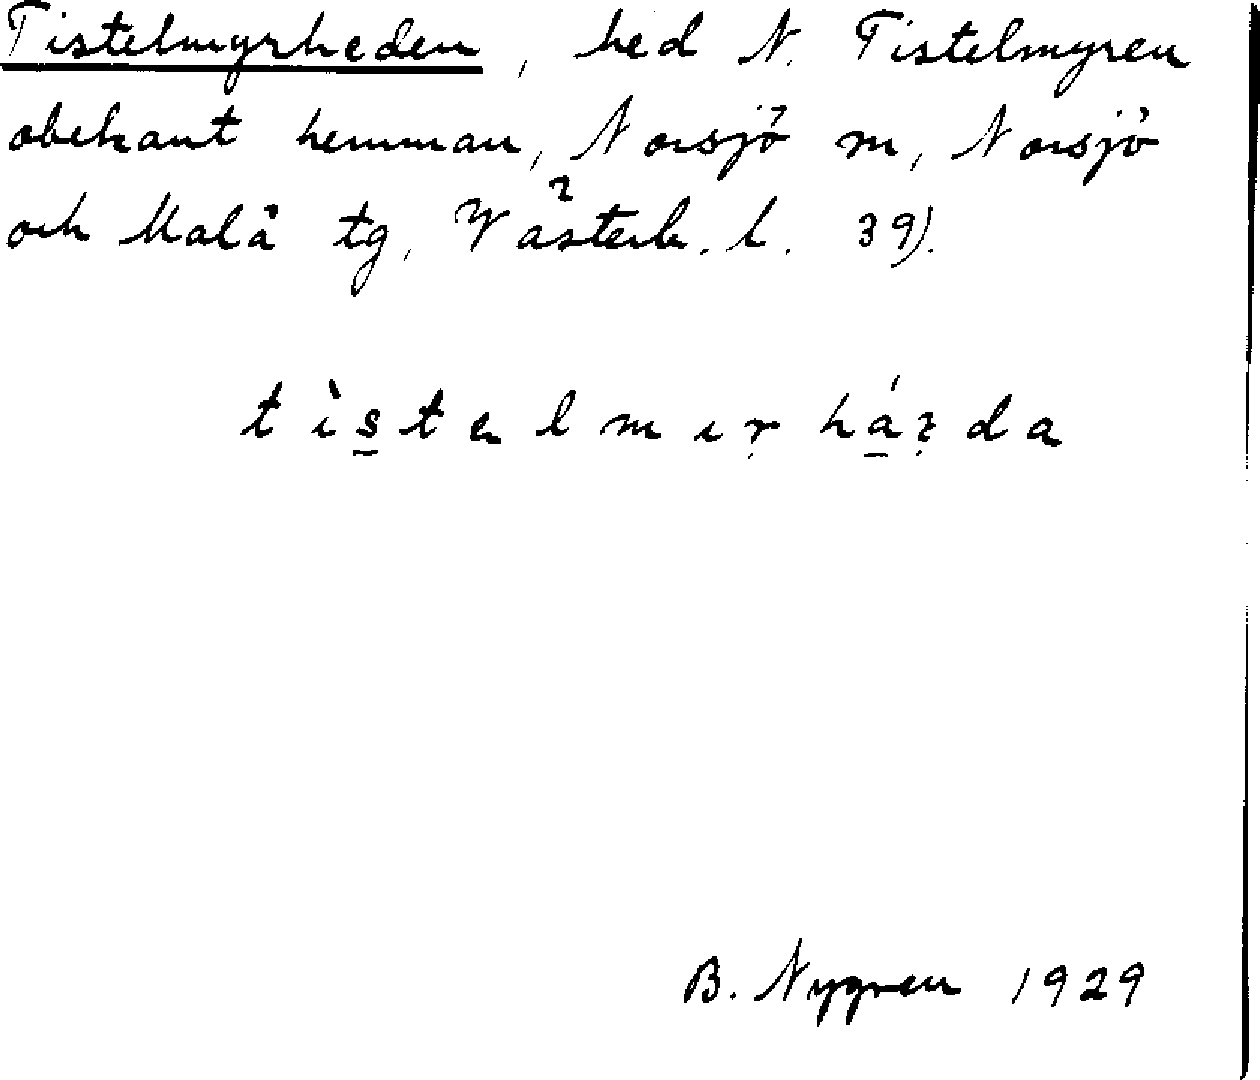 Tistelmyrheden, hed N. Tistelmyren
obekant hemman, Norsjö sn, Norsjö
och Malå tg, Västerb. l. 39).
B. Nygren 1929